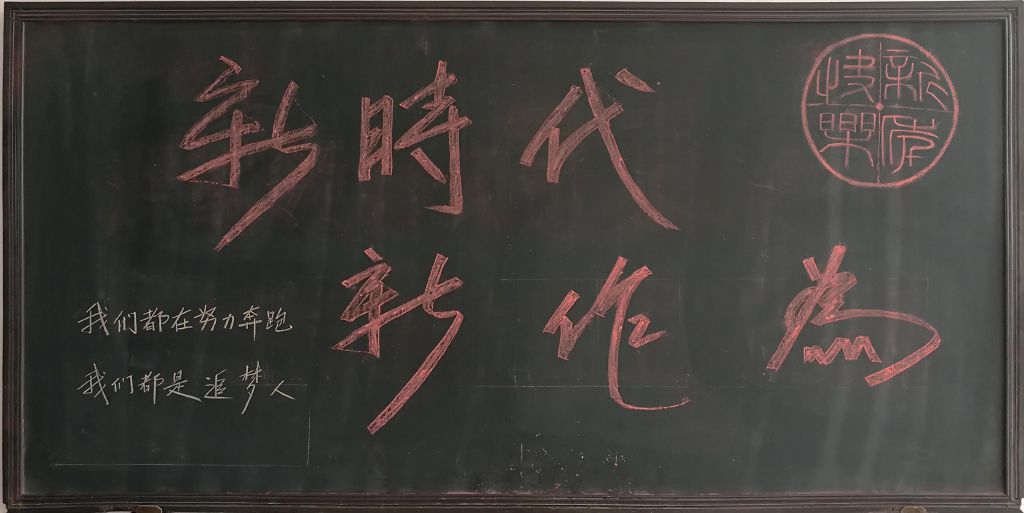 新時代
新作為
新年快樂
我们都在努力奔跑
我们都是追梦人